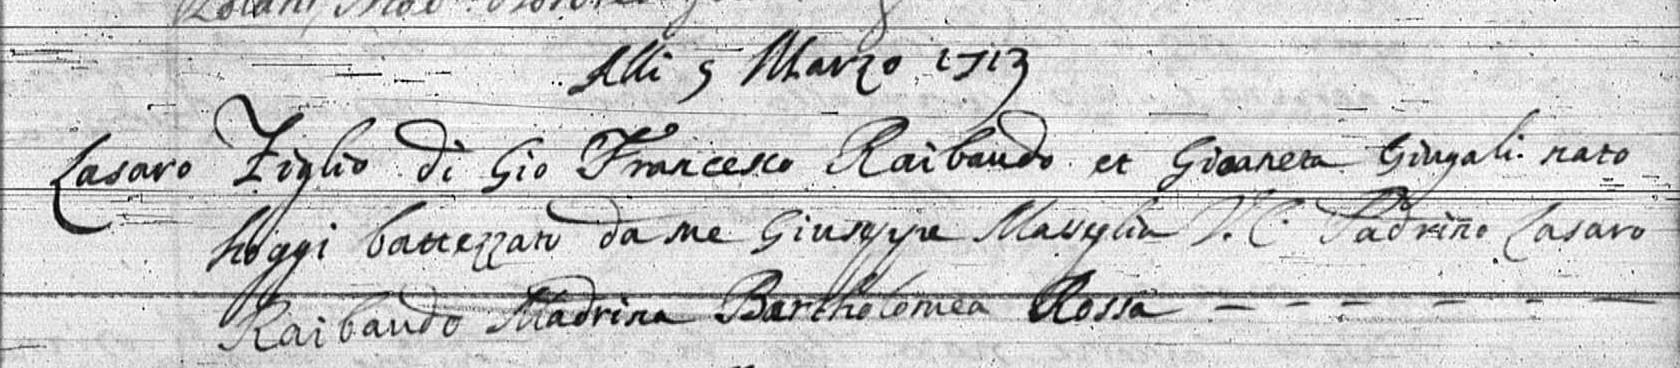 Alli 5 Marzo 1713
Lasaro Figlio di Gio Francesco Raibaudo et Gioaneta Giugali nato
hoggi battezzato da me Giuseppe V. C. Padrino Lasaro
Raibaudo Madrina Bartholomea Rossa